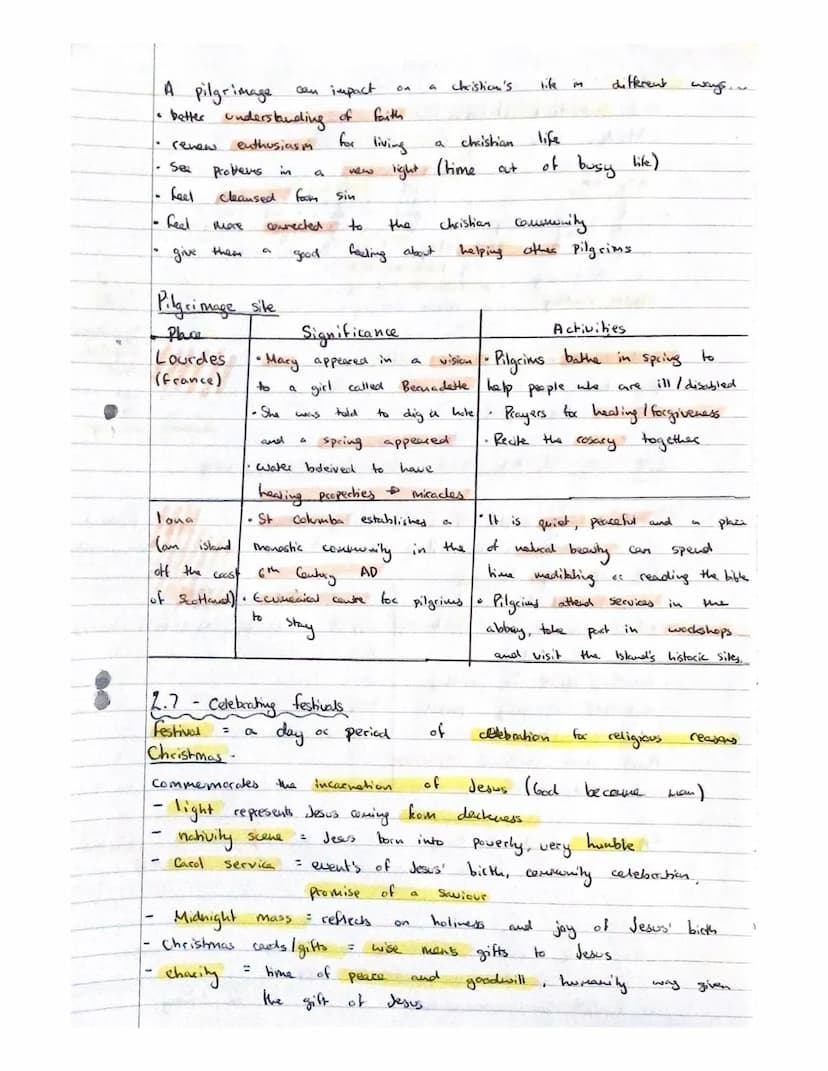 A pilgrimage can impact on a christian's life in different ways...
• better understanding of faith
• renew enthusiasm for living a christian life
• See problems in a new light (time out of busy life)
• feel cleansed from sin
• feel more connected to the christian community
• give them a good feeling about helping other pilgrims
Pilgrimage site
Place
Significance
Activities
Lourdes
(France)
• Mary appeared in a vision
to a girl called Bernadette
• She was told to dig a hole
and a spring appeared
• water beleived to have
healing properties → miracles
• Pilgrims bathe in spring to
help people who are ill/disabled
• Prayers for healing/forgiveness
• Recite the rosary together
Iona
(an island
off the coast
of Scotland)
• St Columba established a
monastic community in the
6th Century AD
• Ecumenical centre for pilgrims
to stay
• It is quiet, peaceful and a place
of natural beauty can spend
time meditating or reading the bible
• Pilgrims attend services in the
abbey, take part in workshops
and visit the Island's historic sites.
2.7 - Celebrating festivals
Festival = a day or period of celebration for religious reasons
Christmas -
commemorates the incarnation of Jesus (God became man)
- light represents Jesus coming from darkness
- nativity scene = Jesus born into poverty, very humble
- Carol service = event's of Jesus' birth, community celebration,
promise of a saviour
- Midnight mass = reflects on holiness and joy of Jesus' birth
- Christmas cards/gifts = wise men's gifts to Jesus
- charity = time of peace and goodwill, humanity was given
the gift of Jesus